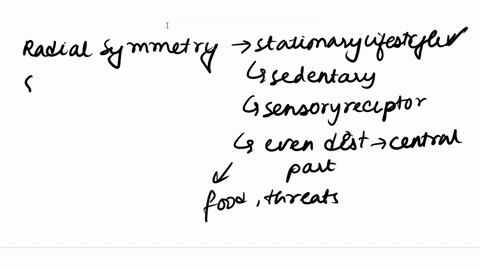 Radial Symmetry → stationary lifestyle ✓
↳ sedentary
↳ sensory reciptor
↳ even dist → central
part
food, threats